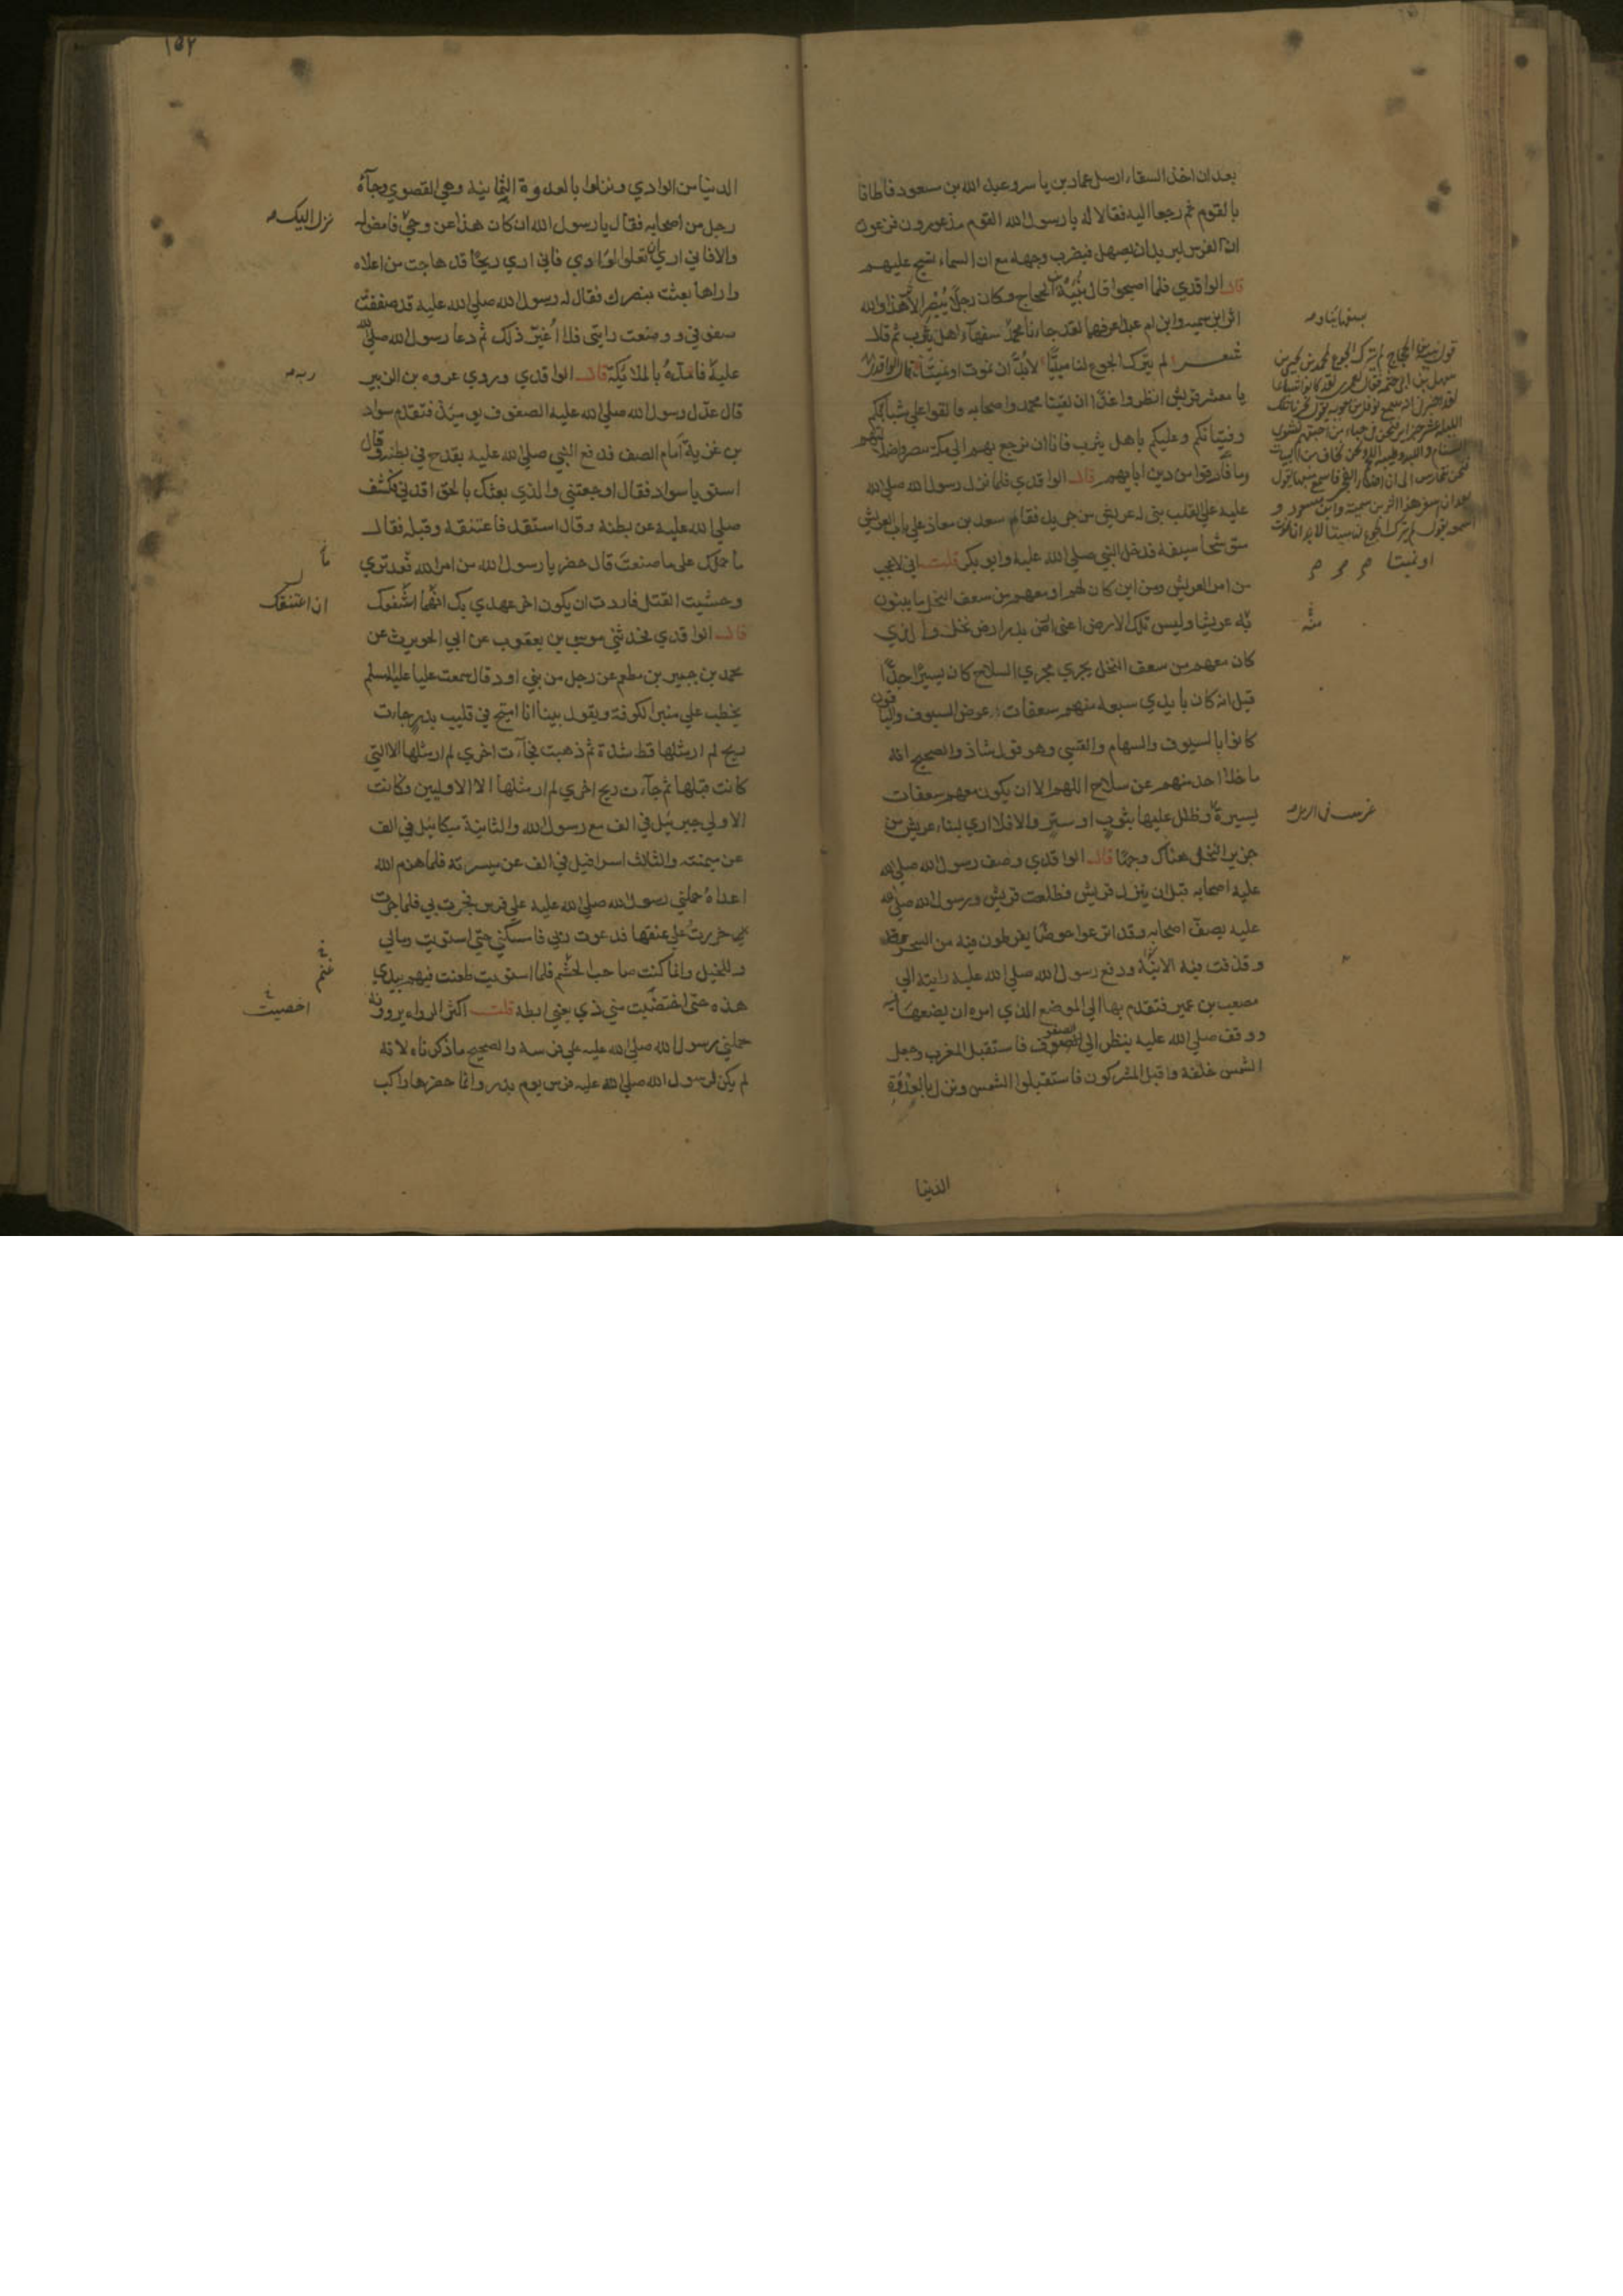 بعد ان اخذ السقاء ارسل عمار بن ياسر وعبد الله بن مسعود فاطافا
بالقوم ثم رجعا اليه فقالا له يا رسول الله القوم مذعورون فزعون
ان الفرس ليريد ان يصهل فيضرب وجهه مع ان السماء تسح عليهم
قال الواقدي فلما اصبحوا قال نبيه بن الحجاج وكان رجلا يبصر الاثر هذا والله
اثر ابن سميه وابن ام عبد اعرفهما لقد جاءنا محمد سفهاء اهل يثرب ثم قال
شعر لم يترك الجوع لنا مبيتا لابد ان نموت او نميتا قال الواقدي
يا معشر قريش انظروا غدا ان لقينا محمد واصحابه فالقوا على شبانكم
وفتيانكم وعليكم باهل يثرب فانا ان نرجع بهم الى مكة يبصروا ضلالتهم
وما فارقوا من دين ابايهم قال الواقدي فلما نزل رسول الله صلى الله
عليه على القلب بنى له عريش من جريد فقام سعد بن معاذ على باب العريش
متوشحا سيفه فدخل النبي صلى الله عليه وابو بكر قلت اني لاعجب
من امر العريش ومن اين كان لهم او معهم من سعف النخل ما يبنون
به عريشا وليس تلك الارض اعني ارض بدر ارض نخل والذي
كان معهم من سعف النخل يجري مجري السلاح كان يسيرا جدا
قيل انه كان بايدي سبعة منهم سعفات عوض السيوف والباقون
كانوا بالسيوف والسهام والقسي وهو قول شاذ والصحيح انه
ما خلا احد منهم عن سلاح اللهم الا ان يكون معهم سعفات
يسيرة وظلل عليها بثوب او ستر والا فلا اري لبناء عريش من
جريد النخل هناك وجها قال الواقدي وصف رسول الله صلى الله
عليه اصحابه قبل ان ينزل قريش فطلعت قريش ورسول الله صلى الله
عليه يصف اصحابه وقد اترعوا حوضا يفرطون فيه من السحر
وقذفت فيه الانية ودفع رسول الله صلى الله عليه رايته الي
مصعب بن عمير فتقدم بها الى الموضع الذي امره ان يضعها فيه
ووقف صلى الله عليه ينظر الى الصفوف فاستقبل المغرب وجعل
الشمس خلفه واقبل المشركون فاستقبلوا الشمس ونزل بالعدوة
الدنيا
منه
او نميتا
١٥٢
الدنيا من الوادي ونزلوا بالعدوة اليمانية وهي القصوي وجاءه
رجل من اصحابه فقال يا رسول الله ان كان هذا عن وحي فامض له
نزل اليك
والا فاني اري ان تعلوا الوادي فاني اري ريحا قد هاجت من اعلاه
واراها بعثت بنصرك فقال له رسول الله صلى الله عليه قد صففت
صفوفي ووضعت رايتي فلا اغير ذلك ثم دعا رسول الله صلى الله
عليه فامده بالملائكة قال الواقدي وروي عروه بن الزبير
ربه
قال عدل رسول الله صلى الله عليه الصفوف يومئذ فتقدم سواد
بن غزية امام الصف فدفع النبي صلى الله عليه بقدح في بطنه وقال
استو يا سواد فقال اوجعتني والذي بعثك بالحق اقدني فكشف
صلى الله عليه عن بطنه وقال استقد فاعتنقه وقبله فقال
ما حملك على ما صنعت قال حضر يا رسول الله من امر الله ما قد تري
وخشيت القتل فاردت ان يكون اخر عهدي بك
ان اعتنقك
قال الواقدي فحدثني موسى بن يعقوب عن ابي الحويرث عن
محمد بن جبير بن مطعم عن رجل من بني اود قال سمعت عليا عليه السلم
يخطب على منبر الكوفة ويقول بينا انا اميح في قليب بدر جاءت
ريح لم ار مثلها قط شدة ثم ذهبت فجاءت اخري لم ار مثلها الا التي
كانت قبلها ثم جاءت ريح اخري لم ار مثلها الا الاوليين وكانت
الاولي جبرئيل في الف مع رسول الله والثانية ميكائيل في الف
عن ميمنته والثالث اسرافيل في الف عن ميسرته فلما هزم الله
اعداه حملني رسول الله صلى الله عليه علي فرس فجرت بي فلما جرت
بي خررت علي عنقها فدعوت ربي فامسكني حتى استويت ومالي
وللخيل وانما كنت صاحب الحشم فلما استويت طعنت فيهم بيدي
غنم
هذه حتى اختضبت مني ذي يعني ابطه قلت اكثر الرواه يروونه
اخضبت
حملني رسول الله صلى الله عليه علي فرسه والصحيح ما ذكرناه لانه
لم يكن لرسول الله صلى الله عليه فرس يوم بدر وانما حضرها راكب